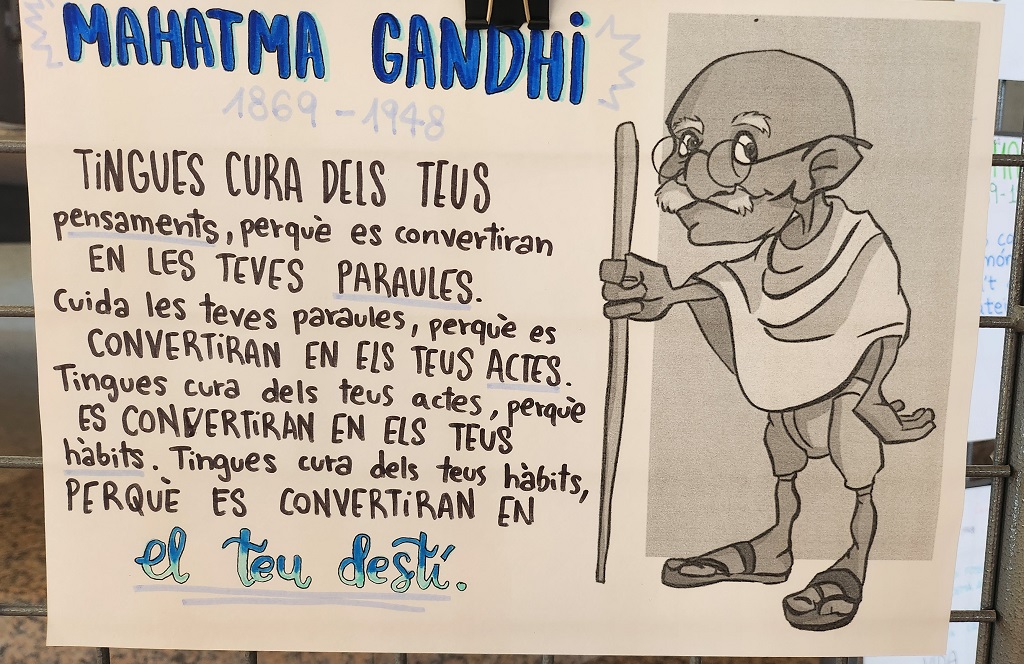 MAHATMA GANDHi
1869 - 1948
TiNGUES CURA DELS TEUS
pensaments, perquè es convertiran
EN LES TEVES PARAULES.
Cuida les teves paraules, perquè es
CONVERTiRAN EN ELS TEUS ACTES.
Tingues cura dels teus actes, perquè
ES CONVERTiRAN EN ELS TEUS
hàbits. Tingues cura dels teus hàbits,
PERQUÈ ES CONVERTiRAN EN
el teu destí.